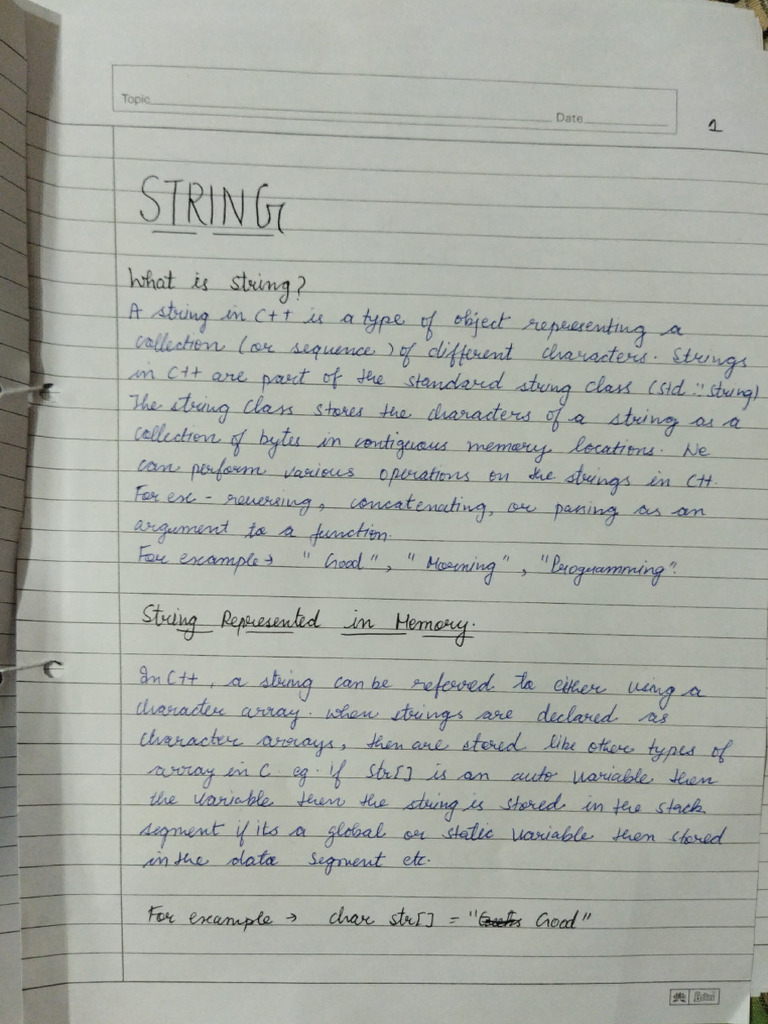 Topic
Date
1
STRING
What is string?
A string in C++ is a type of object representing a
collection (or sequence) of different characters. Strings
in C++ are part of the standard string class (std :: string)
The string class stores the characters of a string as a
collection of bytes in contiguous memory locations. We
can perform various operations on the strings in C++.
For ex - reversing, concatenating, or passing as an
argument to a function.
For example → "Good", "Morning", "Programming".
String Represented in Memory.
In C++, a string can be referred to either using a
character array. when strings are declared as
character arrays, then are stored like other types of
array in C. eg. if str[] is an auto variable then
the variable then the string is stored in the stack
segment if its a global or static variable then stored
in the data segment etc.
For example → char str[] = " Good"